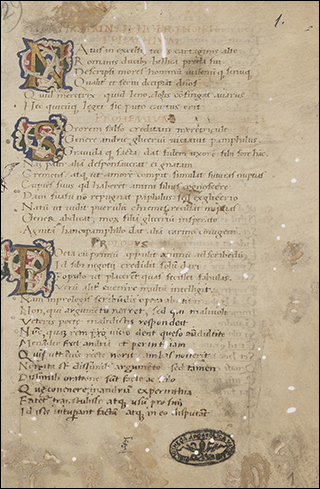 1.
Natus in excelsis tectis cartaginis alte
Romanis ducibus bellica preda fui
Descripsi mores hominum iuvenumq senumq
Qualiter et servi decipiant dnos
Quid meretrix quid leno dolis cofingat avarus
Hec quicuq leget sic puto cautus erit
Sororem falso creditam meretricule
Genere andrie glicerium vitiavit pamphilus
Gravidaq facta dat fidem uxore sibi fore hanc
Nam pater aliā desponsaverat ei gnatam
Chremetis atq ut amore compit simulat futuras nuptias
Cupiens suus qd haberet animi filius cognoscere
Davi suasu no repugnat paphilus
Sed ex glicerio
Natu ut vidit puerulu chremes recusat nuptias
Generu abdicat, mox filia gliceriu insperato
Agnita hanc pamphilo dat alia carino coniugem
PROLOGUS
Poeta cu primu appulit animu ad scribendu
Id sibi negoti credidit solu dari
Populo ut placerent quas fecisset fabulas
Veru aliter evenire multo intelligit
Nam in prologis scribundis opera abutitur
Non qui argumetu narret, sed qui malivoli
Veteris poete maledictis respondeat
Nunc qua rem vicio dent queso advertite
Menader fecit andria et perinthiam
Qui utravis recte norit ambas noverit
No ita st dissimili argumeto sed tamen
Dissimili oratione sut facte ac stilo
Que convenere in andriā ex perinthia
Fatetur transtulisse atq usu pro suis
Id isti vituperant factu atq in eo disputant
1